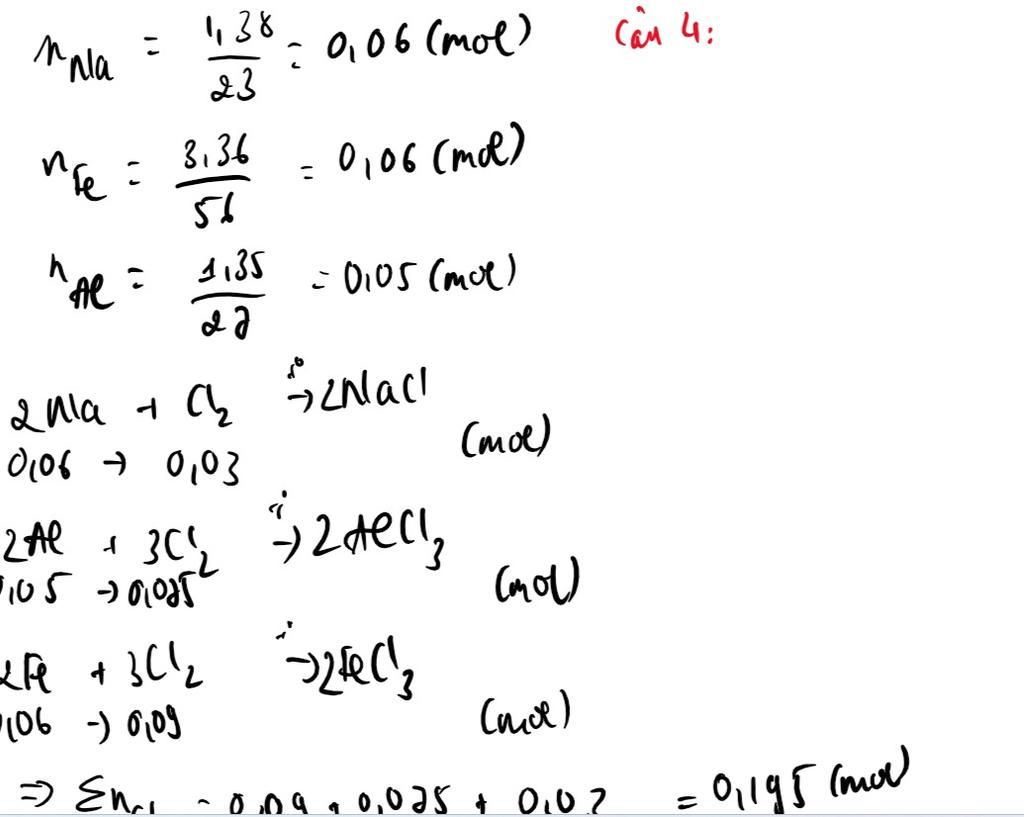 n Na = 1,38 / 23 = 0,06 (mol) Câu 4:
n Fe = 3,36 / 56 = 0,06 (mol)
n Al = 1,35 / 27 = 0,05 (mol)
2Na + Cl2 → 2NaCl
0,06 → 0,03 (mol)
2Al + 3Cl2 → 2AlCl3
,05 → 0,075 (mol)
2Fe + 3Cl2 → 2FeCl3
,06 → 0,09 (mol)
⇒ Σn = 0,09 + 0,075 + 0,03 = 0,195 (mol)